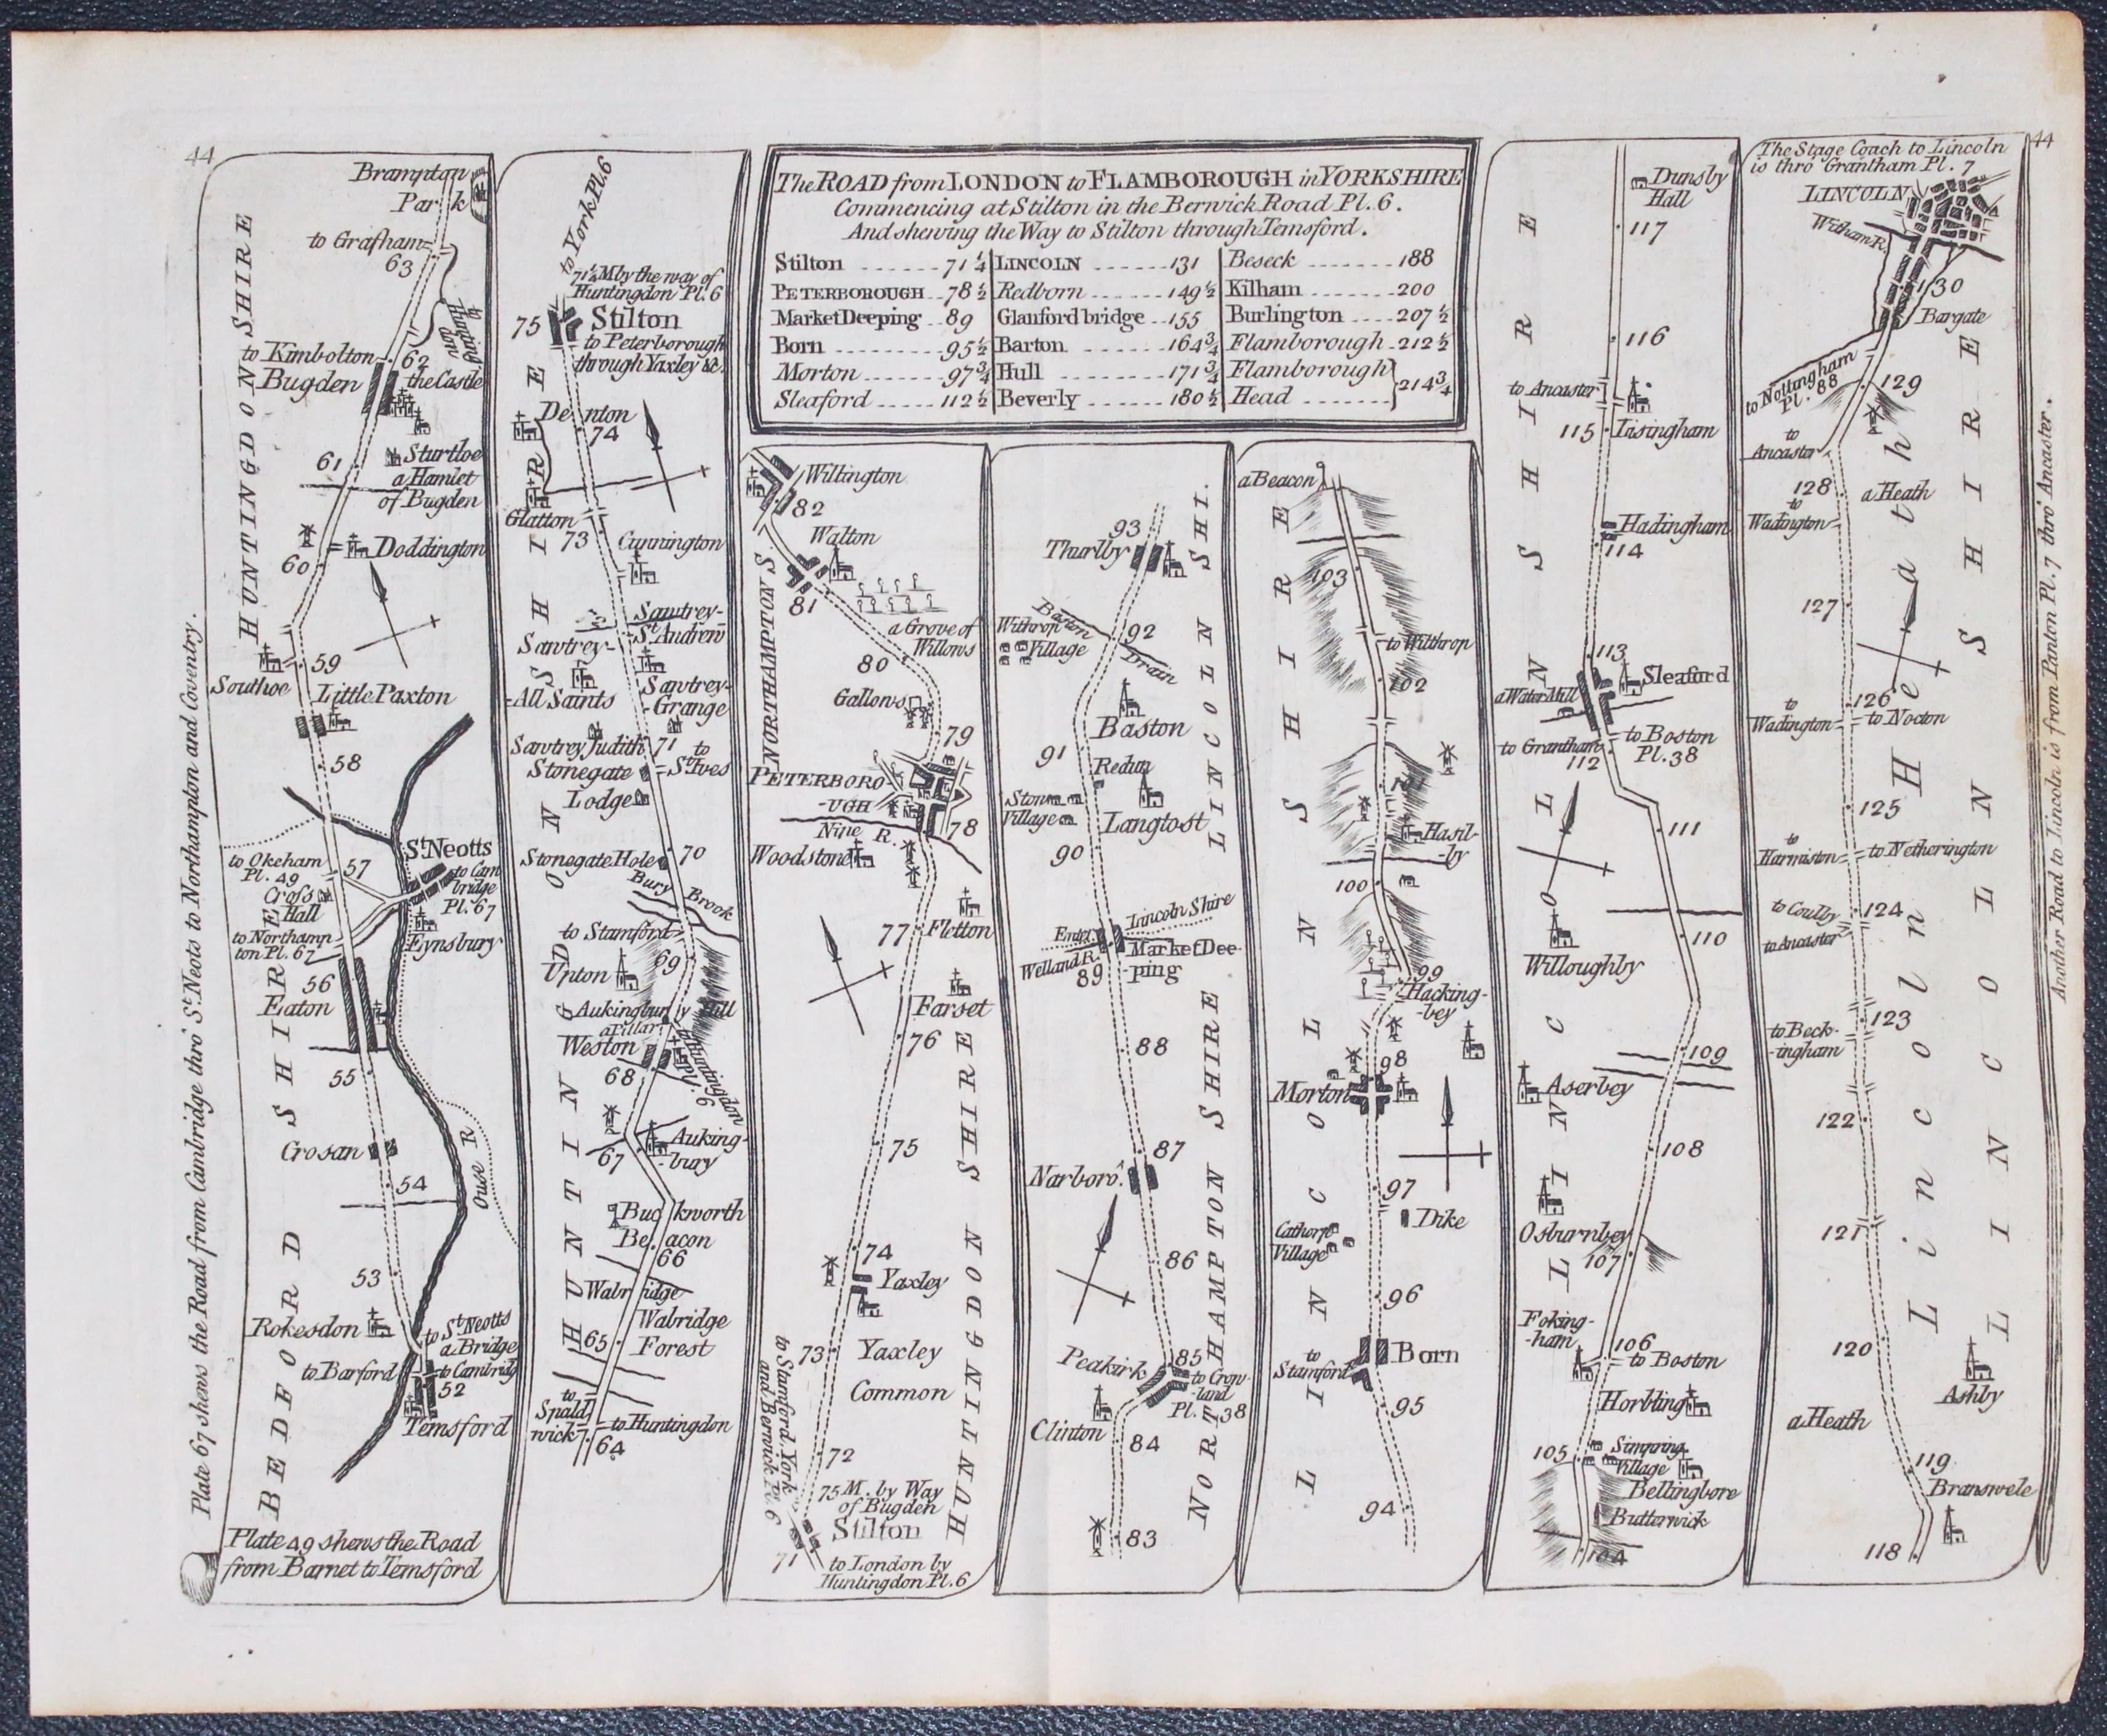 44
44
The ROAD from LONDON to FLAMBOROUGH in YORKSHIRE
Commencing at Stilton in the Berwick Road Pl. 6.
And shewing the Way to Stilton through Temsford.
Stilton ------- 71 1/4
PETERBOROUGH -- 78 1/2
Market Deeping -- 89
Born --------- 95 1/2
Morton ------- 97 3/4
Sleaford ----- 112 1/2
LINCOLN ------ 131
Redborn ------ 149 1/2
Glanford bridge -- 155
Barton ------- 164 3/4
Hull --------- 171 3/4
Beverly ------ 180 1/2
Beseck ------- 188
Kilham ------- 200
Burlington ---- 207 1/2
Flamborough - 212 1/2
Flamborough
Head ------- } 214 3/4
Plate 67 shews the Road from Cambridge thro' St. Neots to Northampton and Coventry.
HUNTINGDONSHIRE
Brampton
Park
to Grafham
63
to Hunting
don
to Kimbolton
62
Bugden
the Castle
61
Sturtloe
a Hamlet
of Bugden
60
Doddington
59
Southoe
Little Paxton
58
St. Neotts
to Okeham
Pl. 49
57
to Cam
bridge
Pl. 67
Cross
Hall
to Northamp
ton Pl. 67
Eynsbury
56
Eaton
55
Crosan
54
Ouse R
53
Rokesdon
to St. Neotts
a Bridge
to Barford
to Cambridg
52
Temsford
BEDFORD SHIRE
Plate 49 shews the Road
from Barnet to Temsford
to York Pl. 6
71 1/4 M by the way of
Huntingdon Pl. 6
75
Stilton
to Peterborough
through Yaxley &c.
Denton
74
Glatton
73
Cunnington
Sawtrey-
St. Andrew
Sawtrey-
-All Saints
Sawtrey-
-Grange
Sawtrey Judith
71
to
St. Ives
Stonegate
Lodge
Stonegate Hole
70
Bury Brook
to Stamford
69
Upton
Aukingbury Hill
a Pillar
Weston
to Huntingdon
Pl. 6
68
Auking-
-bury
67
Buckworth
Beacon
66
Wabridge
Wabridge
Forest
65
to
Spald
wick
to Huntingdon
64
HUNTINGDON SHIRE
Wiltington
82
Walton
81
a Grove of
Willows
80
Gallows
79
PETERBORO-
-UGH
78
Nine R.
Woodstone
77
Fletton
Farset
76
75
74
Yaxley
73
Yaxley
Common
72
to Stamford York
and Berwick Pl. 6
75 M. by Way
of Bugden
Stilton
71
to London by
Huntingdon Pl. 6
NORTHAMPTON S.
HUNTINGDON SHIRE
93
Thurlby
Baston Drain
Withrop
Village
92
Baston
91
Redun
Stow
Village
Langtost
90
Enter Lincoln Shire
Welland R.
Market Dee-
-ping
89
88
87
Narboro'
86
Peakirk
85
to Crow-
-land
Pl. 38
Clinton
84
83
LINCOLN SHI.
NORTHAMPTON SHIRE
a Beacon
103
to Wilthrop
102
101
Hasil-
-by
100
99
Hacking-
-bey
98
Morton
97
Dike
Cathorp
Village
96
to
Stamford
Born
95
94
LINCOLN SHIRE
Dunsby
Hall
117
116
to Ancaster
115
Lasingham
Hadingham
114
113
a Water Mill
Sleaford
to Grantham
112
to Boston
Pl. 38
111
110
Willoughby
109
Aserbey
108
Osburnbey
107
Foking-
-ham
106
to Boston
Horbling
105
Simpring
Village
Bellingbore
Butterwick
104
LINCOLN SHIRE
The Stage Coach to Lincoln
is thro' Grantham Pl. 7
LINCOLN
Witham R.
130
Bargate
to Nottingham
Pl. 88
129
to
Ancaster
128
a Heath
to
Wadington
127
126
to
Wadington
to Nocton
125
to
Harmiston
to Netherington
to Coulby
124
to Ancaster
123
to Beck-
-ingham
122
121
120
Ashby
a Heath
119
Branswele
118
Lincoln Heath
LINCOLN SHIRE
Another Road to Lincoln is from Panton Pl. 7 thro' Ancaster.